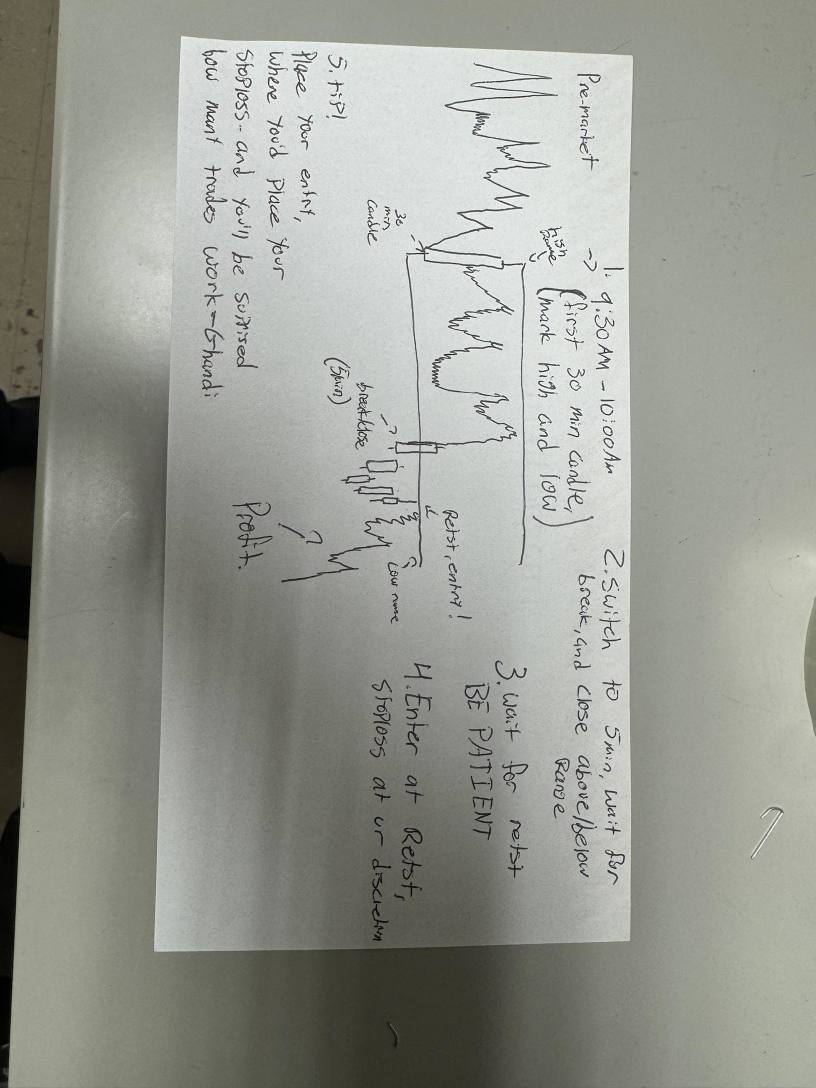 Pre-market
1. 9:30AM - 10:00AM
(first 30 min candle,
mark high and low)
high
range
30
min
candle
2. Switch to 5min, wait for
break, and close above/below
Range
3. Wait for retst
BE PATIENT
4. Enter at Retst,
stoploss at ur discretion
Retst, entry!
Low
break/close
(5min)
Profit.
5. tip!
Place your entry,
where you'd place your
stoploss - and you'll be
how many trades work - Ghandi